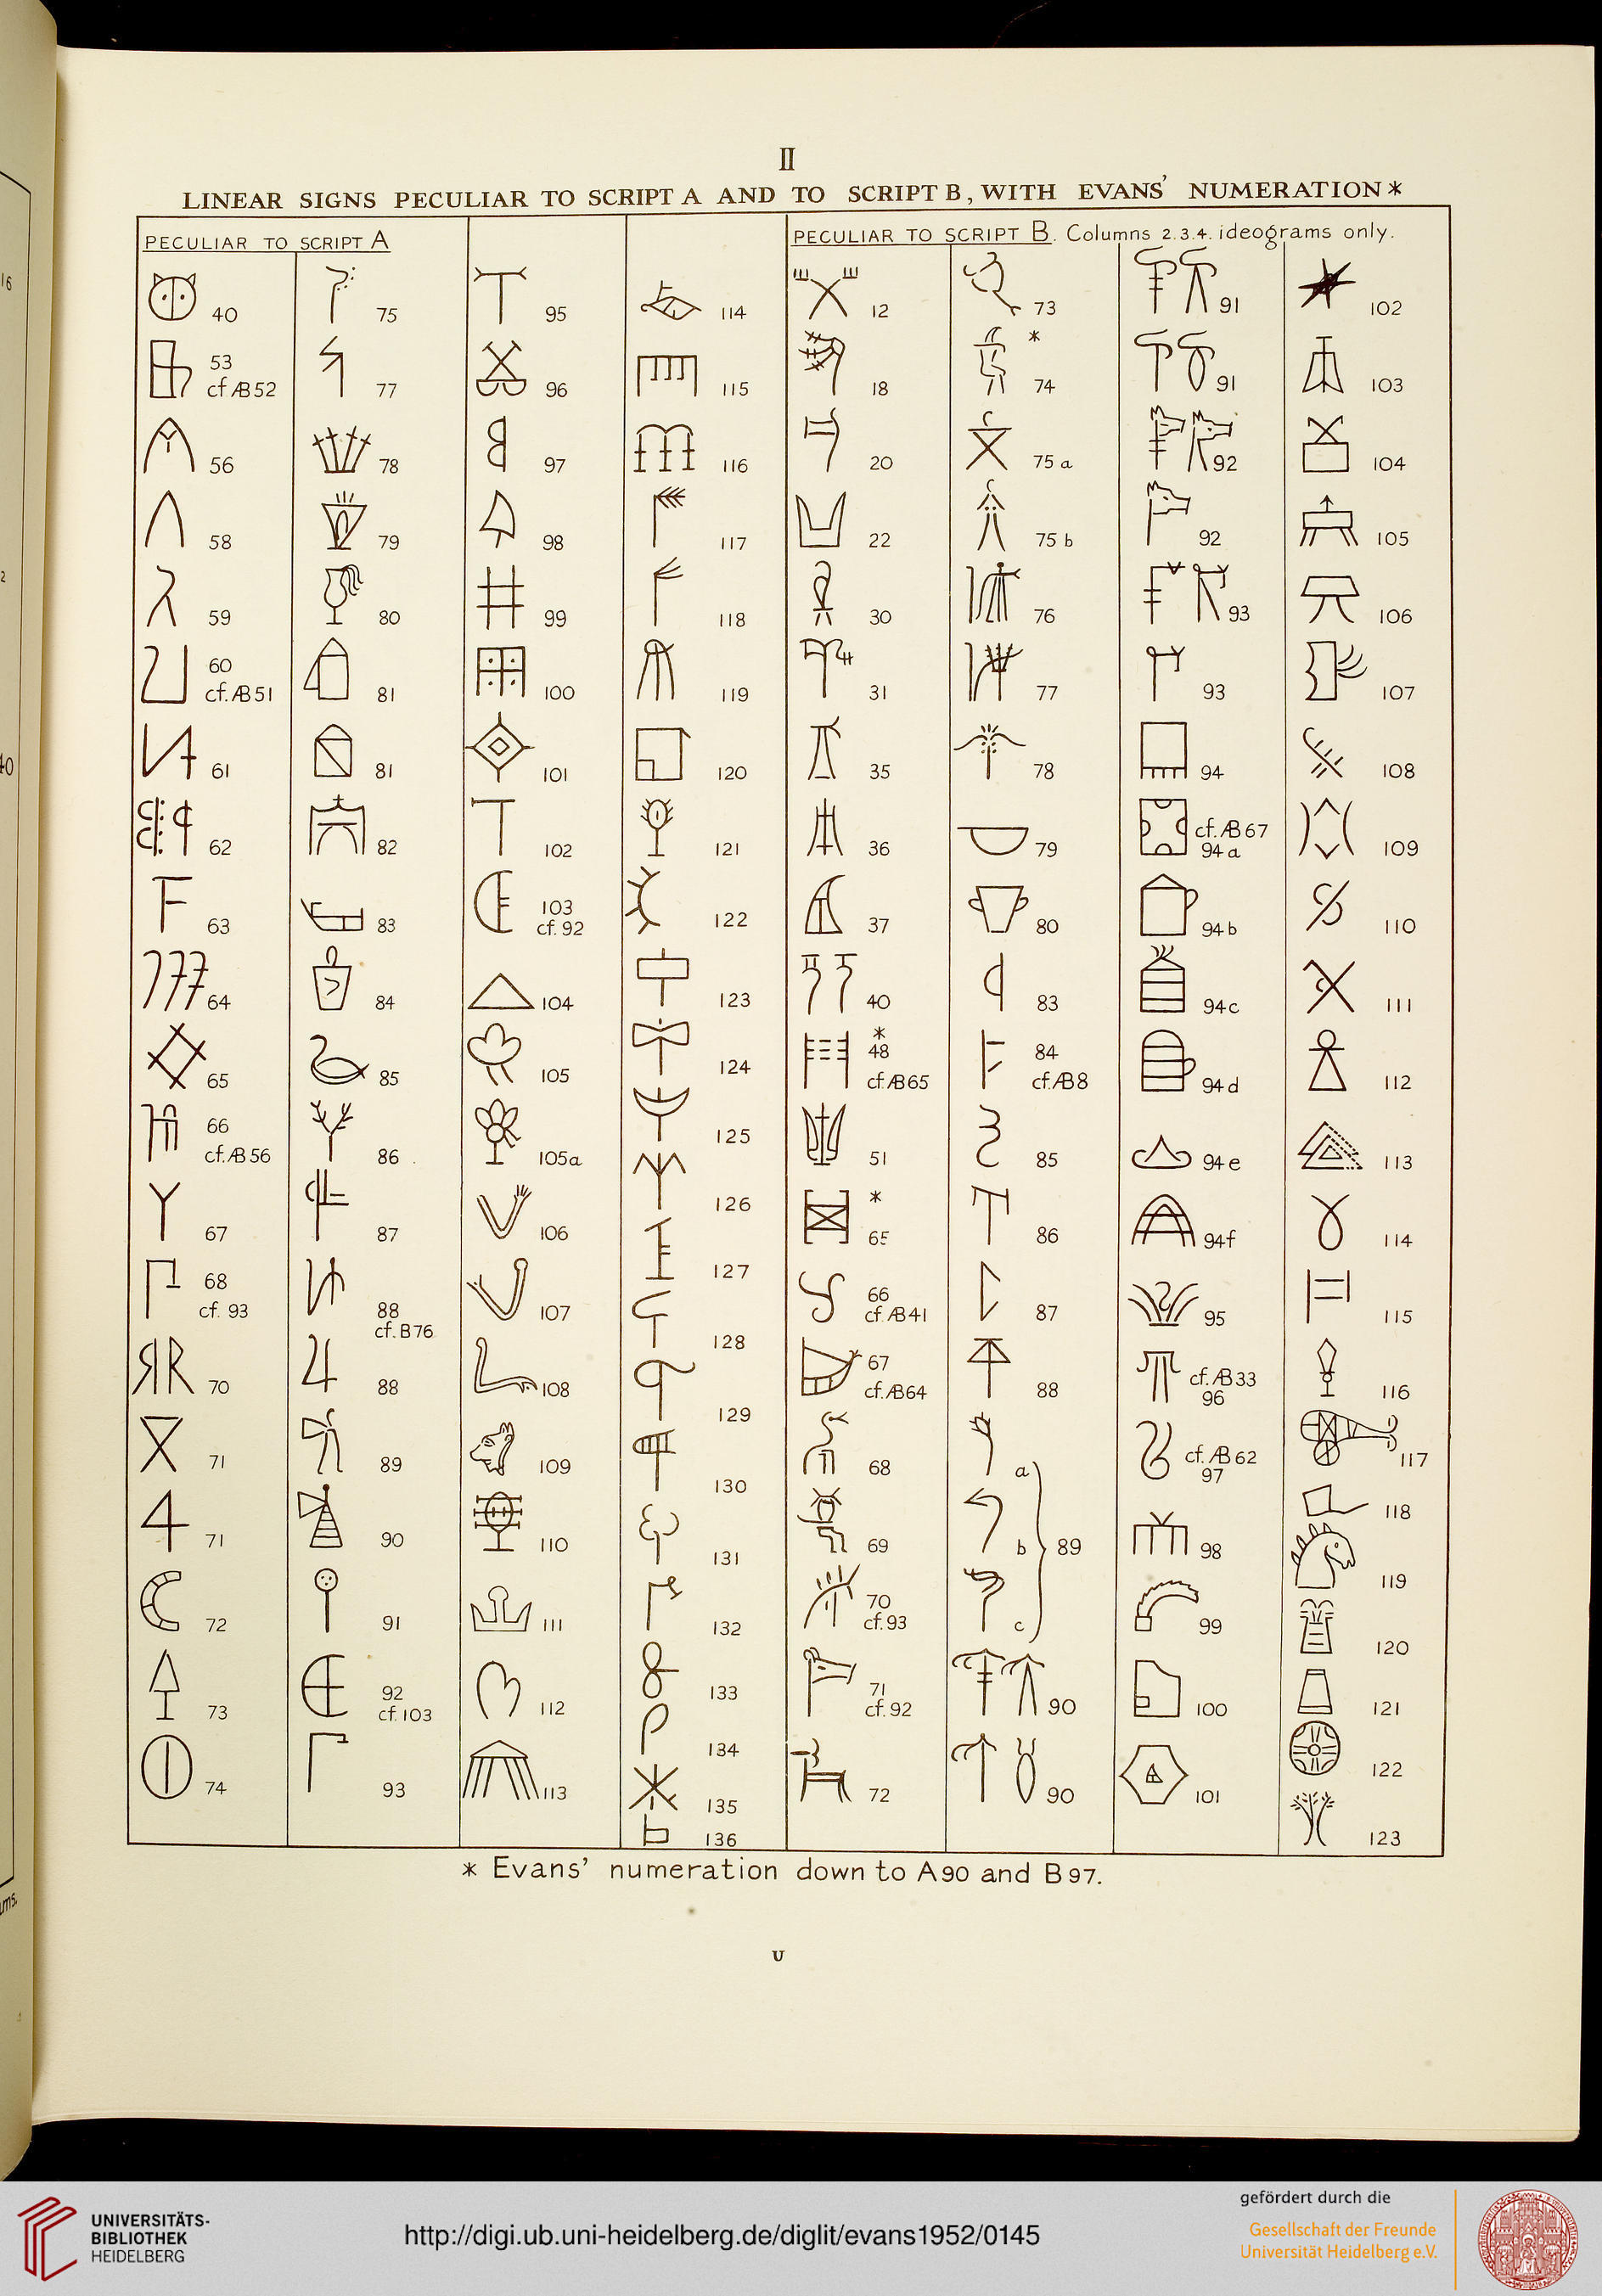 II
LINEAR SIGNS PECULIAR TO SCRIPT A AND TO SCRIPT B, WITH EVANS' NUMERATION *
PECULIAR TO SCRIPT A
40
53
cf Æ52
56
58
59
60
cf. Æ51
61
62
63
64
65
66
cf. Æ56
67
68
cf. 93
70
71
71
72
73
74
75
77
78
79
80
81
81
82
83
84
85
86
87
88
cf. B76
88
89
90
91
92
cf. 103
93
95
96
97
98
99
100
101
102
103
cf. 92
104
105
105a
106
107
108
109
110
111
112
113
114
115
116
117
118
119
120
121
122
123
124
125
126
127
128
129
130
131
132
133
134
135
136
PECULIAR TO SCRIPT B. Columns 2.3.4. ideograms only.
12
18
20
22
30
31
35
36
37
40
*
48
cf Æ65
51
*
65
66
cf. Æ41
67
cf. Æ64
68
69
70
cf. 93
71
cf. 92
72
73
*
74
75 a
75 b
76
77
78
79
80
83
84
cf. Æ8
85
86
87
88
a
b 89
c
90
90
91
91
92
92
93
93
94
cf. Æ67
94 a
94 b
94 c
94 d
94 e
94 f
95
cf. Æ33
96
cf. Æ62
97
98
99
100
101
102
103
104
105
106
107
108
109
110
111
112
113
114
115
116
117
118
119
120
121
122
123
* Evans' numeration down to A90 and B97.
U
UNIVERSITÄTS-
BIBLIOTHEK
HEIDELBERG
http://digi.ub.uni-heidelberg.de/diglit/evans1952/0145
gefördert durch die
Gesellschaft der Freunde
Universität Heidelberg e.V.